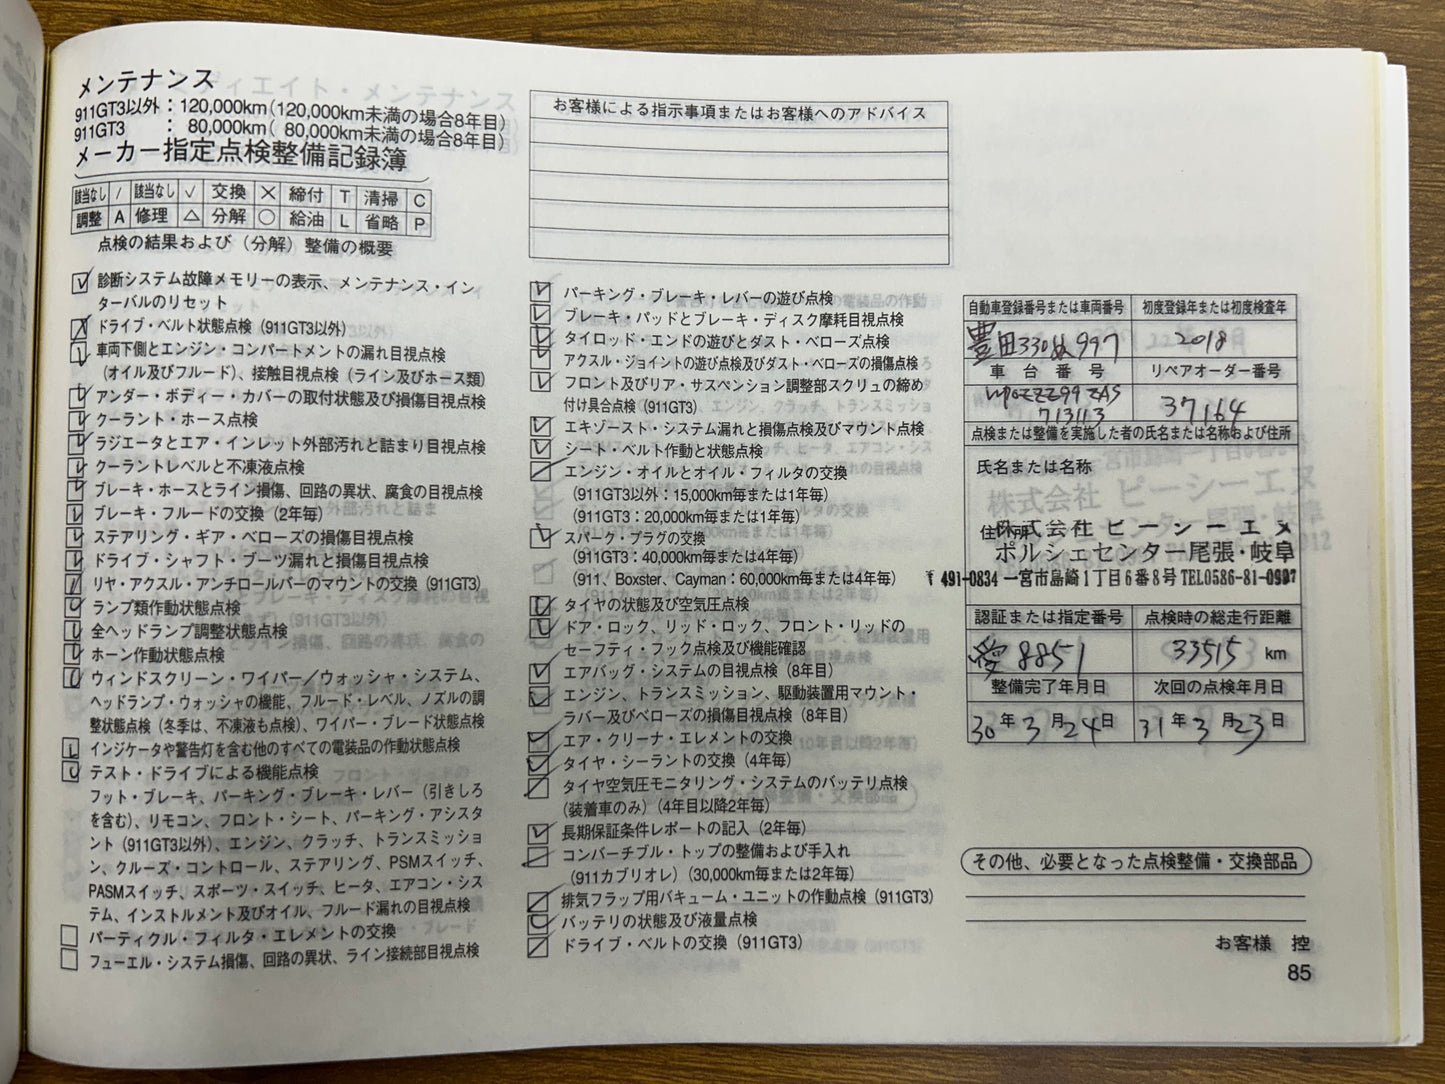 メンテナンス
911GT3以外：120,000km（120,000km未満の場合8年目）
911GT3　　：　80,000km（　80,000km未満の場合8年目）
メーカー指定点検整備記録簿
該当なし / 該当なし ✓ 交換 × 締付 T 清掃 C
調整 A 修理 △ 分解 ○ 給油 L 省略 P
点検の結果および（分解）整備の概要
診断システム故障メモリーの表示、メンテナンス・イン
ターバルのリセット
ドライブ・ベルト状態点検（911GT3以外）
車両下側とエンジン・コンパートメントの漏れ目視点検
（オイル及びフルード）、接触目視点検（ライン及びホース類）
アンダー・ボディー・カバーの取付状態及び損傷目視点検
クーラント・ホース点検
ラジエータとエア・インレット外部汚れと詰まり目視点検
クーラントレベルと不凍液点検
ブレーキ・ホースとライン損傷、回路の異状、腐食の目視点検
ブレーキ・フルードの交換（2年毎）
ステアリング・ギア・ベローズの損傷目視点検
ドライブ・シャフト・ブーツ漏れと損傷目視点検
リヤ・アクスル・アンチロールバーのマウントの交換（911GT3）
ランプ類作動状態点検
全ヘッドランプ調整状態点検
ホーン作動状態点検
ウィンドスクリーン・ワイパー／ウォッシャ・システム、
ヘッドランプ・ウォッシャの機能、フルード・レベル、ノズルの調
整状態点検（冬季は、不凍液も点検）、ワイパー・ブレード状態点検
インジケータや警告灯を含む他のすべての電装品の作動状態点検
テスト・ドライブによる機能点検
フット・ブレーキ、パーキング・ブレーキ・レバー（引きしろ
を含む）、リモコン、フロント・シート、パーキング・アシスタ
ント（911GT3以外）、エンジン、クラッチ、トランスミッショ
ン、クルーズ・コントロール、ステアリング、PSMスイッチ、
PASMスイッチ、スポーツ・スイッチ、ヒータ、エアコン・シス
テム、インストルメント及びオイル、フルード漏れの目視点検
パーティクル・フィルタ・エレメントの交換
フューエル・システム損傷、回路の異状、ライン接続部目視点検
お客様による指示事項またはお客様へのアドバイス
パーキング・ブレーキ・レバーの遊び点検
ブレーキ・パッドとブレーキ・ディスク摩耗目視点検
タイロッド・エンドの遊びとダスト・ベローズ点検
アクスル・ジョイントの遊び点検及びダスト・ベローズの損傷点検
フロント及びリア・サスペンション調整部スクリュの締め
付け具合点検（911GT3）
エキゾースト・システム漏れと損傷点検及びマウント点検
シート・ベルト作動と状態点検
エンジン・オイルとオイル・フィルタの交換
（911GT3以外：15,000km毎または1年毎）
（911GT3：20,000km毎または1年毎）
スパーク・プラグの交換
（911GT3：40,000km毎または4年毎）
（911、Boxster、Cayman：60,000km毎または4年毎）
タイヤの状態及び空気圧点検
ドア・ロック、リッド・ロック、フロント・リッドの
セーフティ・フック点検及び機能確認
エアバッグ・システムの目視点検（8年目）
エンジン、トランスミッション、駆動装置用マウント・
ラバー及びベローズの損傷目視点検（8年目）
エア・クリーナ・エレメントの交換
タイヤ・シーラントの交換（4年毎）
タイヤ空気圧モニタリング・システムのバッテリ点検
（装着車のみ）（4年目以降2年毎）
長期保証条件レポートの記入（2年毎）
コンバーチブル・トップの整備および手入れ
（911カブリオレ）（30,000km毎または2年毎）
排気フラップ用バキューム・ユニットの作動点検（911GT3）
バッテリの状態及び液量点検
ドライブ・ベルトの交換（911GT3）
自動車登録番号または車両番号 初度登録年または初度検査年
豊田330ぬ997 2018
車台番号 リペアオーダー番号
WP0ZZZ99ZAS
713113 37164
点検または整備を実施した者の氏名または名称および住所
氏名または名称
住所
株式会社 ピーシーエヌ
ポルシェセンター尾張・岐阜
〒491-0834 一宮市島崎1丁目6番8号 TEL0586-81-0997
認証または指定番号 点検時の総走行距離
愛8851 33515 km
整備完了年月日 次回の点検年月日
30年3月24日 31年3月23日
その他、必要となった点検整備・交換部品
お客様　控
85